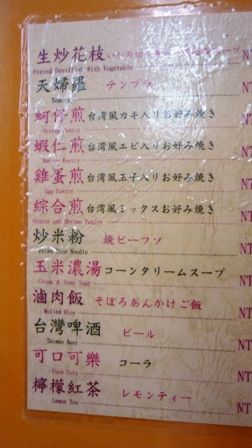 生炒花枝 いかの切り身
Fresed Devilfish With Vegetable NT
天婦羅 テンプラ
Tempura NT
蚵仔煎 台湾風カキ入りお好み焼き
Oyster Pantry NT
蝦仁煎 台湾風エビ入りお好み焼き
Shrimp Pantry NT
雞蛋煎 台湾風玉子入りお好み焼き
Egg Pantry NT
綜合煎 台湾風ミックスお好み焼き
Oyster and Shrimp Pantry NT
炒米粉 焼ビーフソ
Fried Rice Noodle NT
玉米濃湯 コーンタリームスープ
Cream & Corn Soup NT
滷肉飯 そぼろあんかけご飯
Melted Rice NT
台灣啤酒 ビール
Taiwan Beer NT
可口可樂 コーラ
Coca Cola NT
檸檬紅茶 レモンティー
Lemon Tea NT